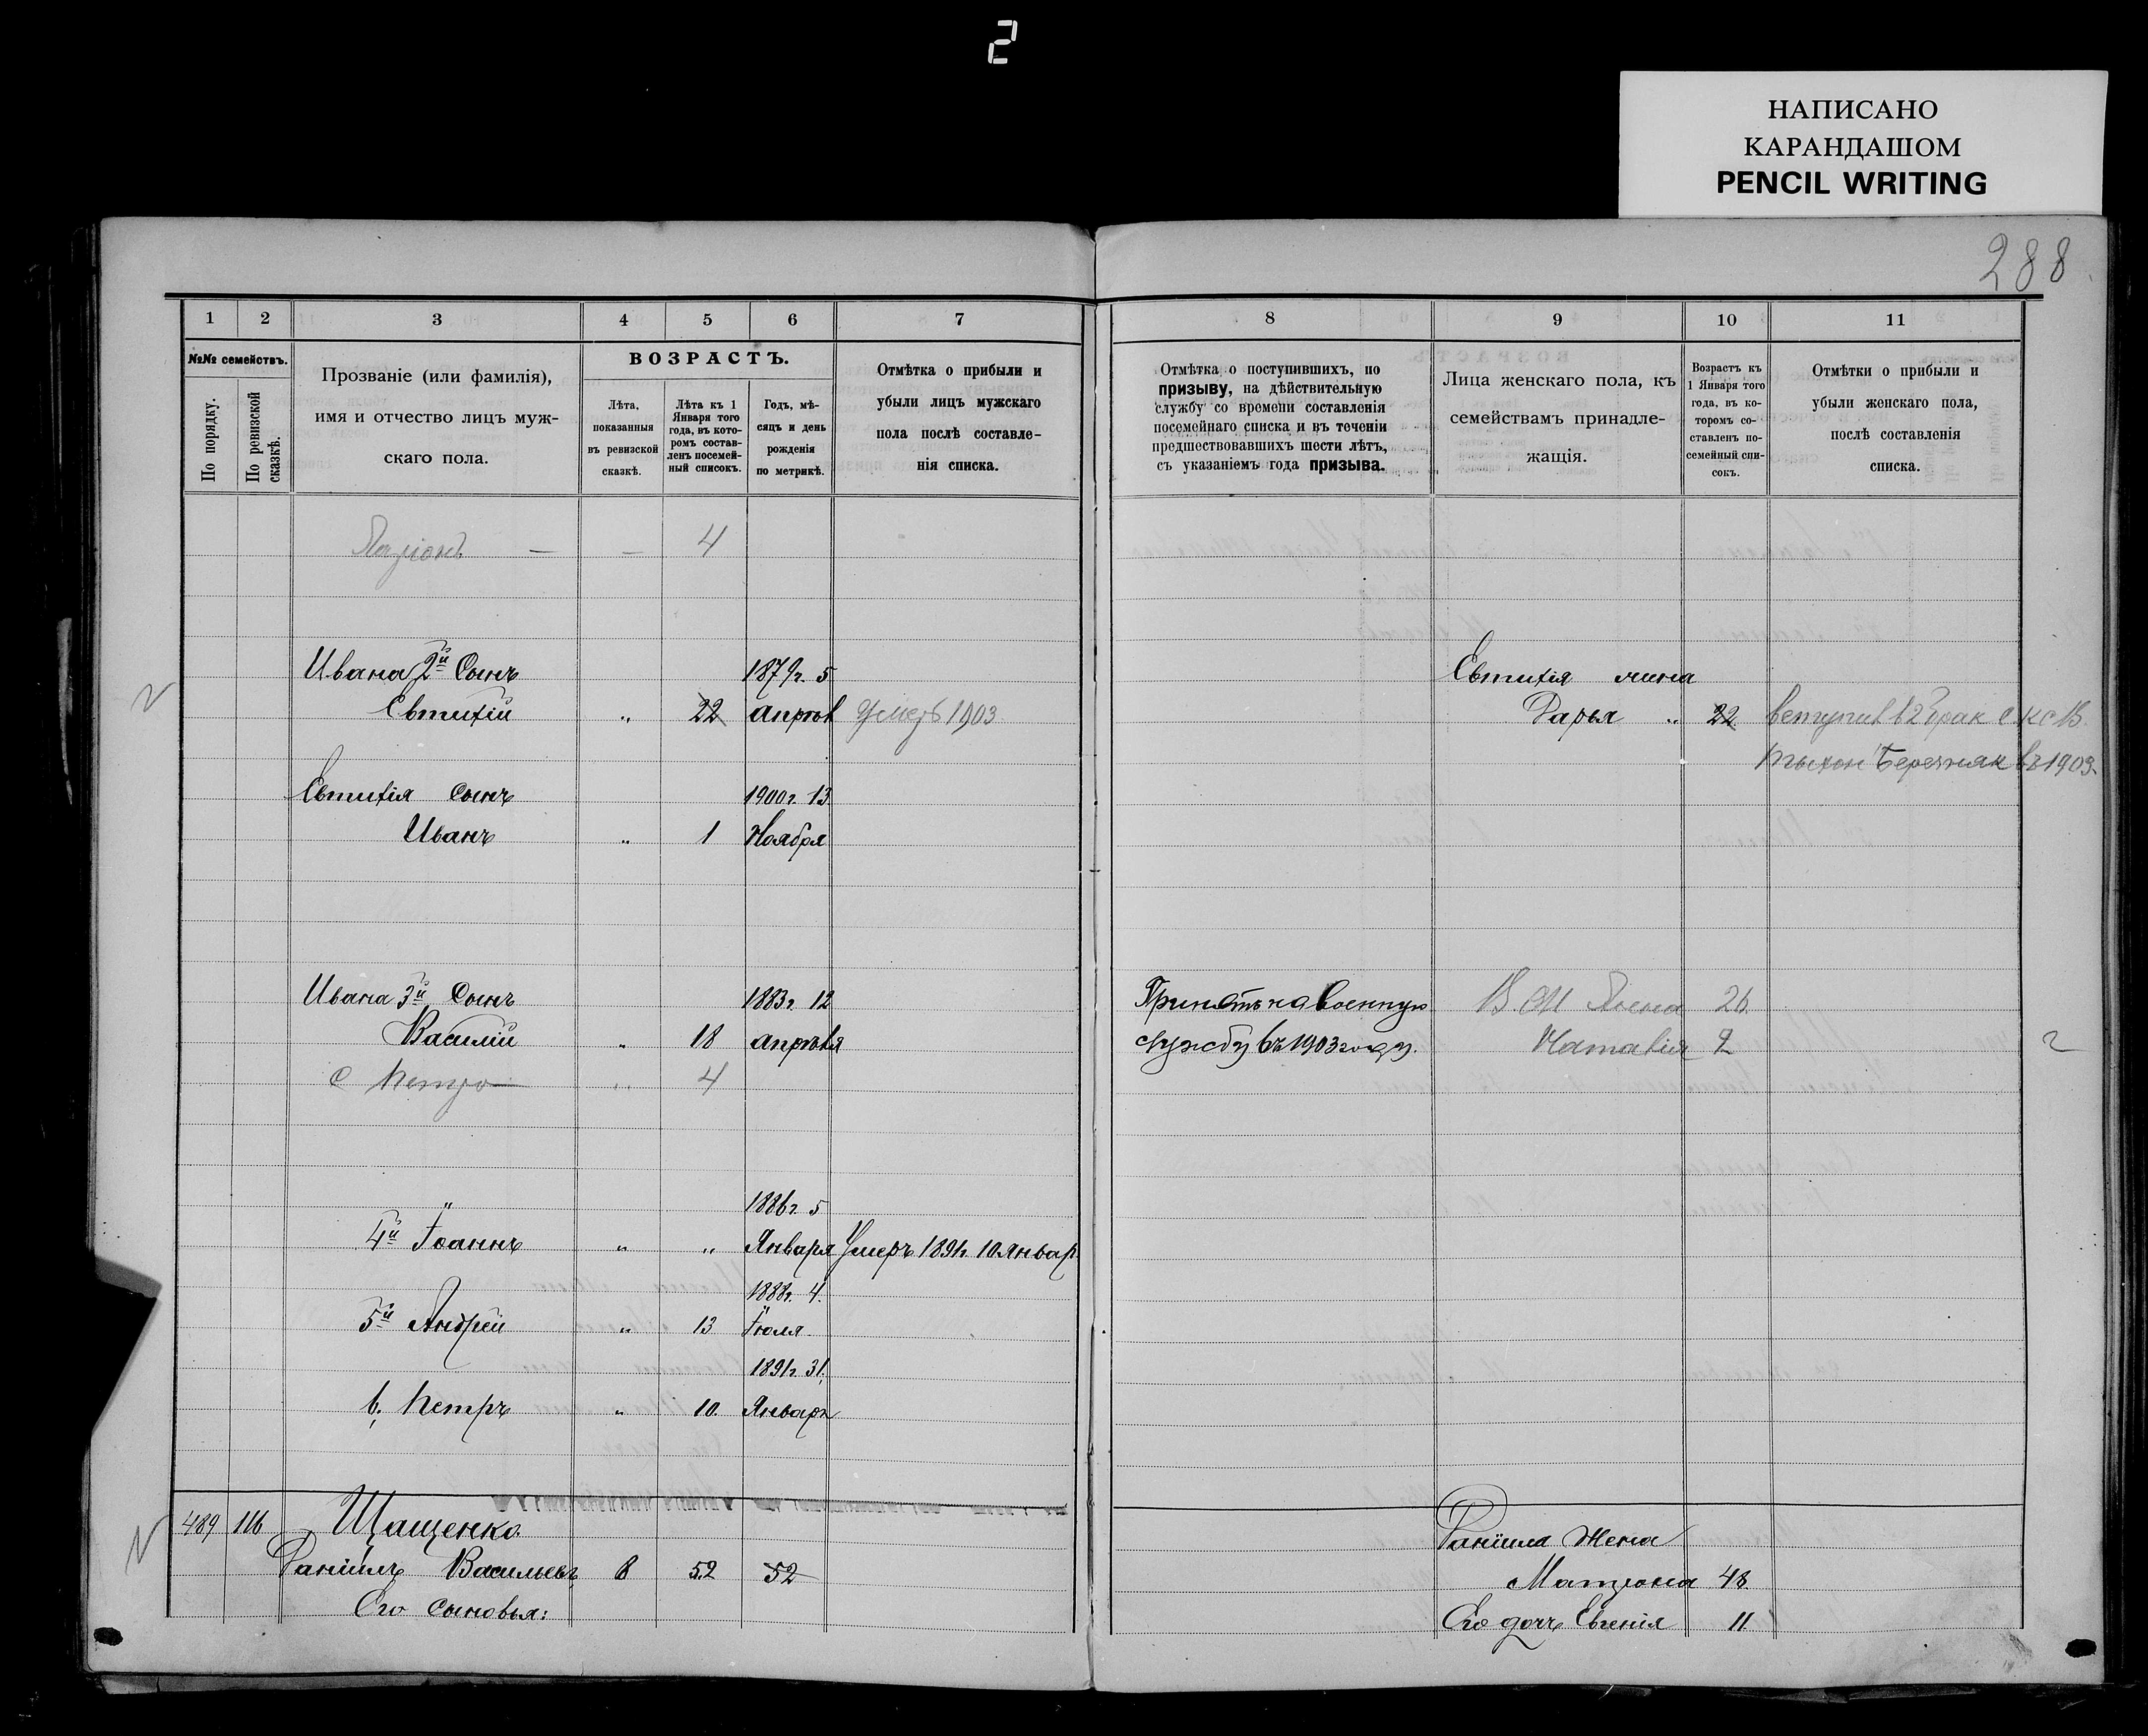 2
НАПИСАНО
КАРАНДАШОМ
PENCIL WRITING
288
1 2 3 4 5 6 7 8 9 10 11
№№ семействъ.
По порядку.
По ревизской сказкѣ.
Прозваніе (или фамилія),
имя и отчество лицъ муж-
скаго пола.
ВОЗРАСТЪ.
Лѣта,
показанныя
въ ревизской
сказкѣ.
Лѣта къ 1
Января того
года, въ кото-
ромъ состав-
ленъ посемей-
ный списокъ.
Годъ, мѣ-
сяцъ и день
рожденія
по метрикѣ.
Отмѣтка о прибыли и
убыли лицъ мужскаго
пола послѣ составле-
нія списка.
Отмѣтка о поступившихъ, по
призыву, на дѣйствительную
службу со времени составленія
посемейнаго списка и въ теченіи
предшествовавшихъ шести лѣтъ,
съ указаніемъ года призыва.
Лица женскаго пола, къ
семействамъ принадле-
жащія.
Возрастъ къ
1 Января того
года, въ ко-
торомъ со-
ставленъ по-
семейный спи-
сокъ.
Отмѣтки о прибыли и
убыли женскаго пола,
послѣ составленія
списка.
— — 4
Ивана 2й Сынъ 1879г. 5 Евтихія жена
Евтихій " 22 апрѣл Умеръ 1903 Дарья " 22 вступил в 2й брак с
въ 1903.
Евтихія сынъ 1900г. 13
Иванъ " 1 Ноября
Ивана 3й Сынъ 1883г. 12 Принятъ на военную 26
Василій " 18 апрѣля службу въ 1903 году. Наталія 2
с Петро " 4
" 1886г. 5
4й Іоаннъ " " Января Умеръ 1891г. 10 Январ
1888г. 4.
5й Андрей " 13 Іюля
1891г. 31.
6. Петръ " 10. Январ
489 116 Щащенко Даніила жена
Даніилъ Васильевъ 8 52 52 Матрона 48
Его сыновья: Его дочь Евгенія 11